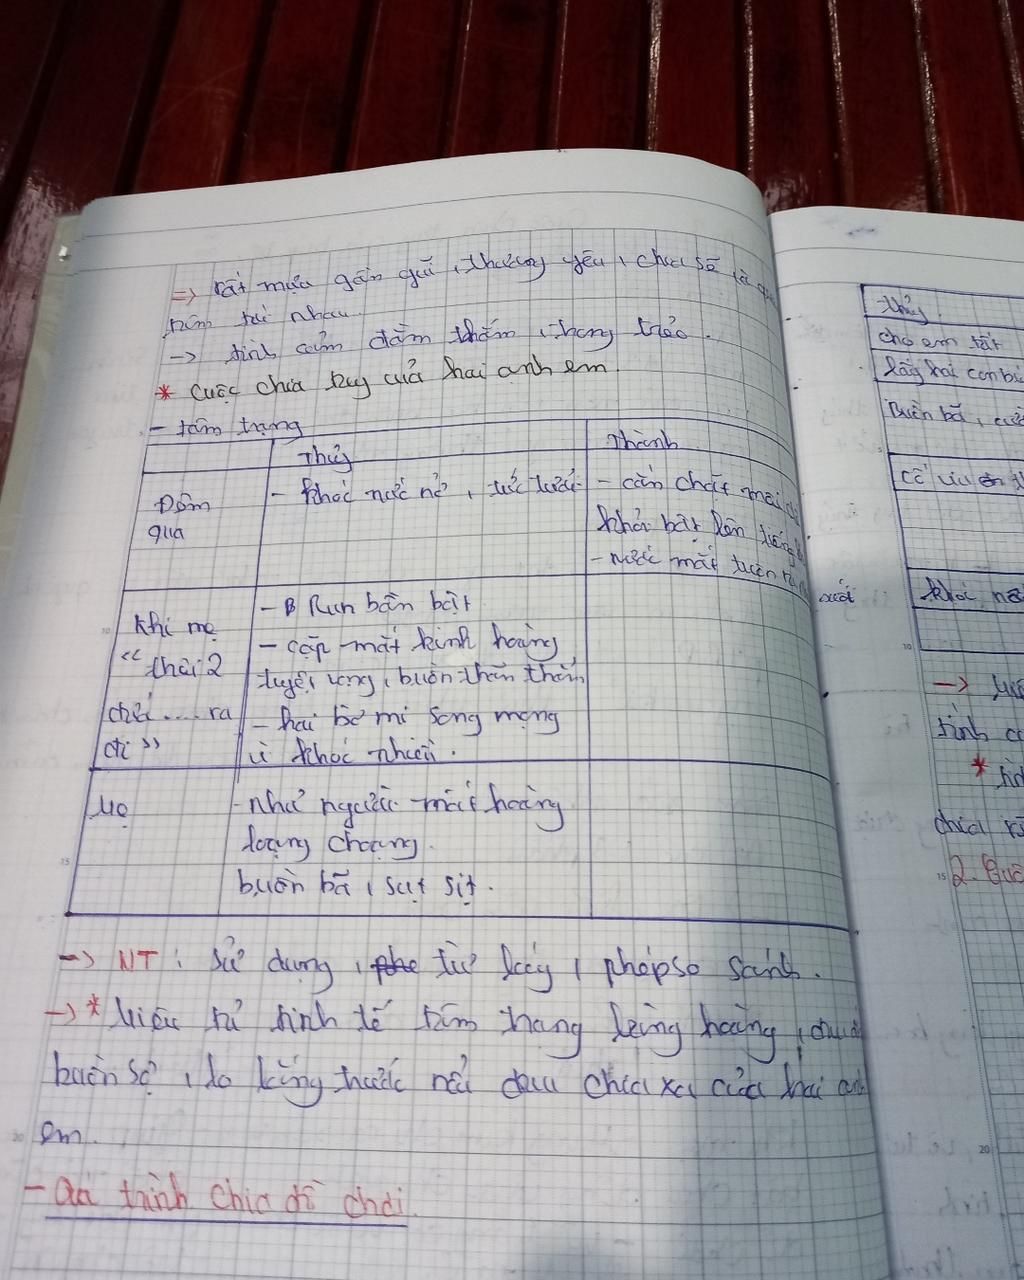 => rất mực gần gũi, thương yêu, chia sẻ là
tâm tới nhau.
-> tình cảm đằm thắm, trong trẻo.
* Cuộc chia tay của hai anh em.
- tâm trạng
Thủy
Thành
Đêm qua
- khóc nức nở, tức tưởi
- cắn chặt môi
khỏi bật lên tiếng
- nước mắt tuôn ra
suối
Khi mẹ
"chia 2
chơi.... ra
đi"
- Run bần bật
- cặp mắt kinh hoàng
tuyệt vọng, buồn thăm thẳm
- hai bờ mi sưng mọng
vì khóc nhiều.
Mẹ
- như người mất hoàng
loạng choạng.
buồn bã, sụt sịt.
-> NT: sử dụng, phe từ láy, phép so sánh.
-> * Miêu tả tinh tế tâm trạng bàng hoàng,
buồn sợ, lo lắng trước nỗi đau chia xa của hai anh
em.
- Quá trình chia đồ chơi.
Thủy
cho em tất
lấy hai con
buồn bã,
khóc nấ
->
tình c
*
chia
2.